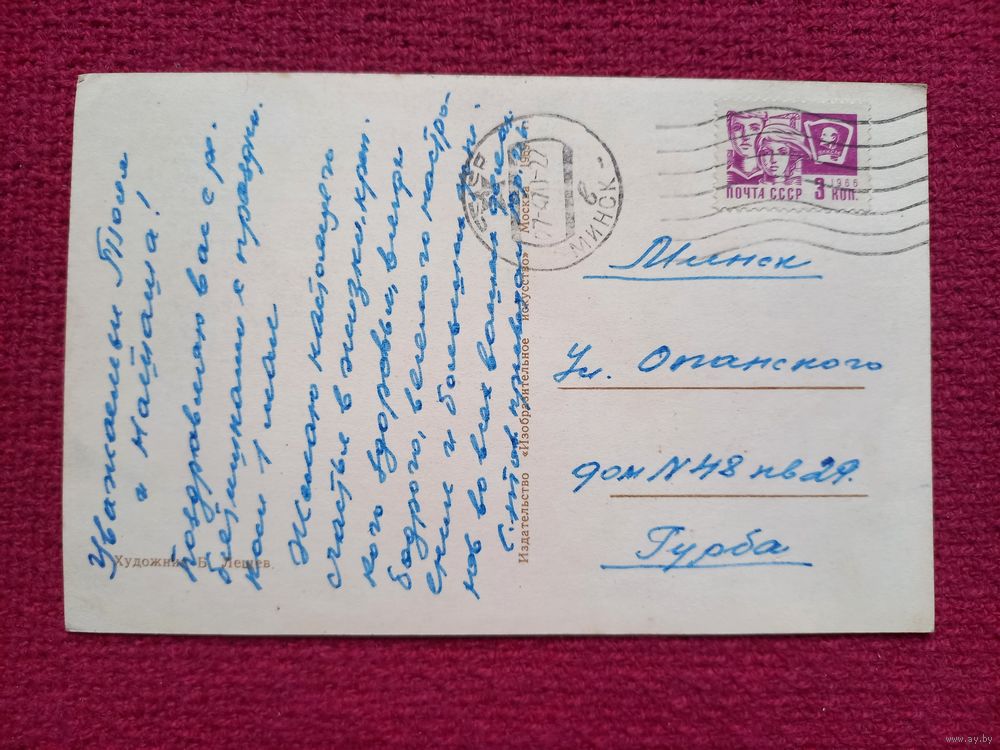 Уважаемые Толя
и Наташа!
Поздравляю вас с ре-
бятишками с праздни-
ком 1 мая.
Желаю настоящего
счастья в жизни, креп-
кого здоровья, всегда
бодрого, веселого настро-
ения и больших
во всех ваших делах.
С
Художник Б. Лещев.
Издательство «Изобразительное искусство» Москва 1969
МИНСК
ПОЧТА СССР
1966
3 КОП.
Минск
Ул. Опанского
дом N 48 кв 29.
Гурба
www.ay.by